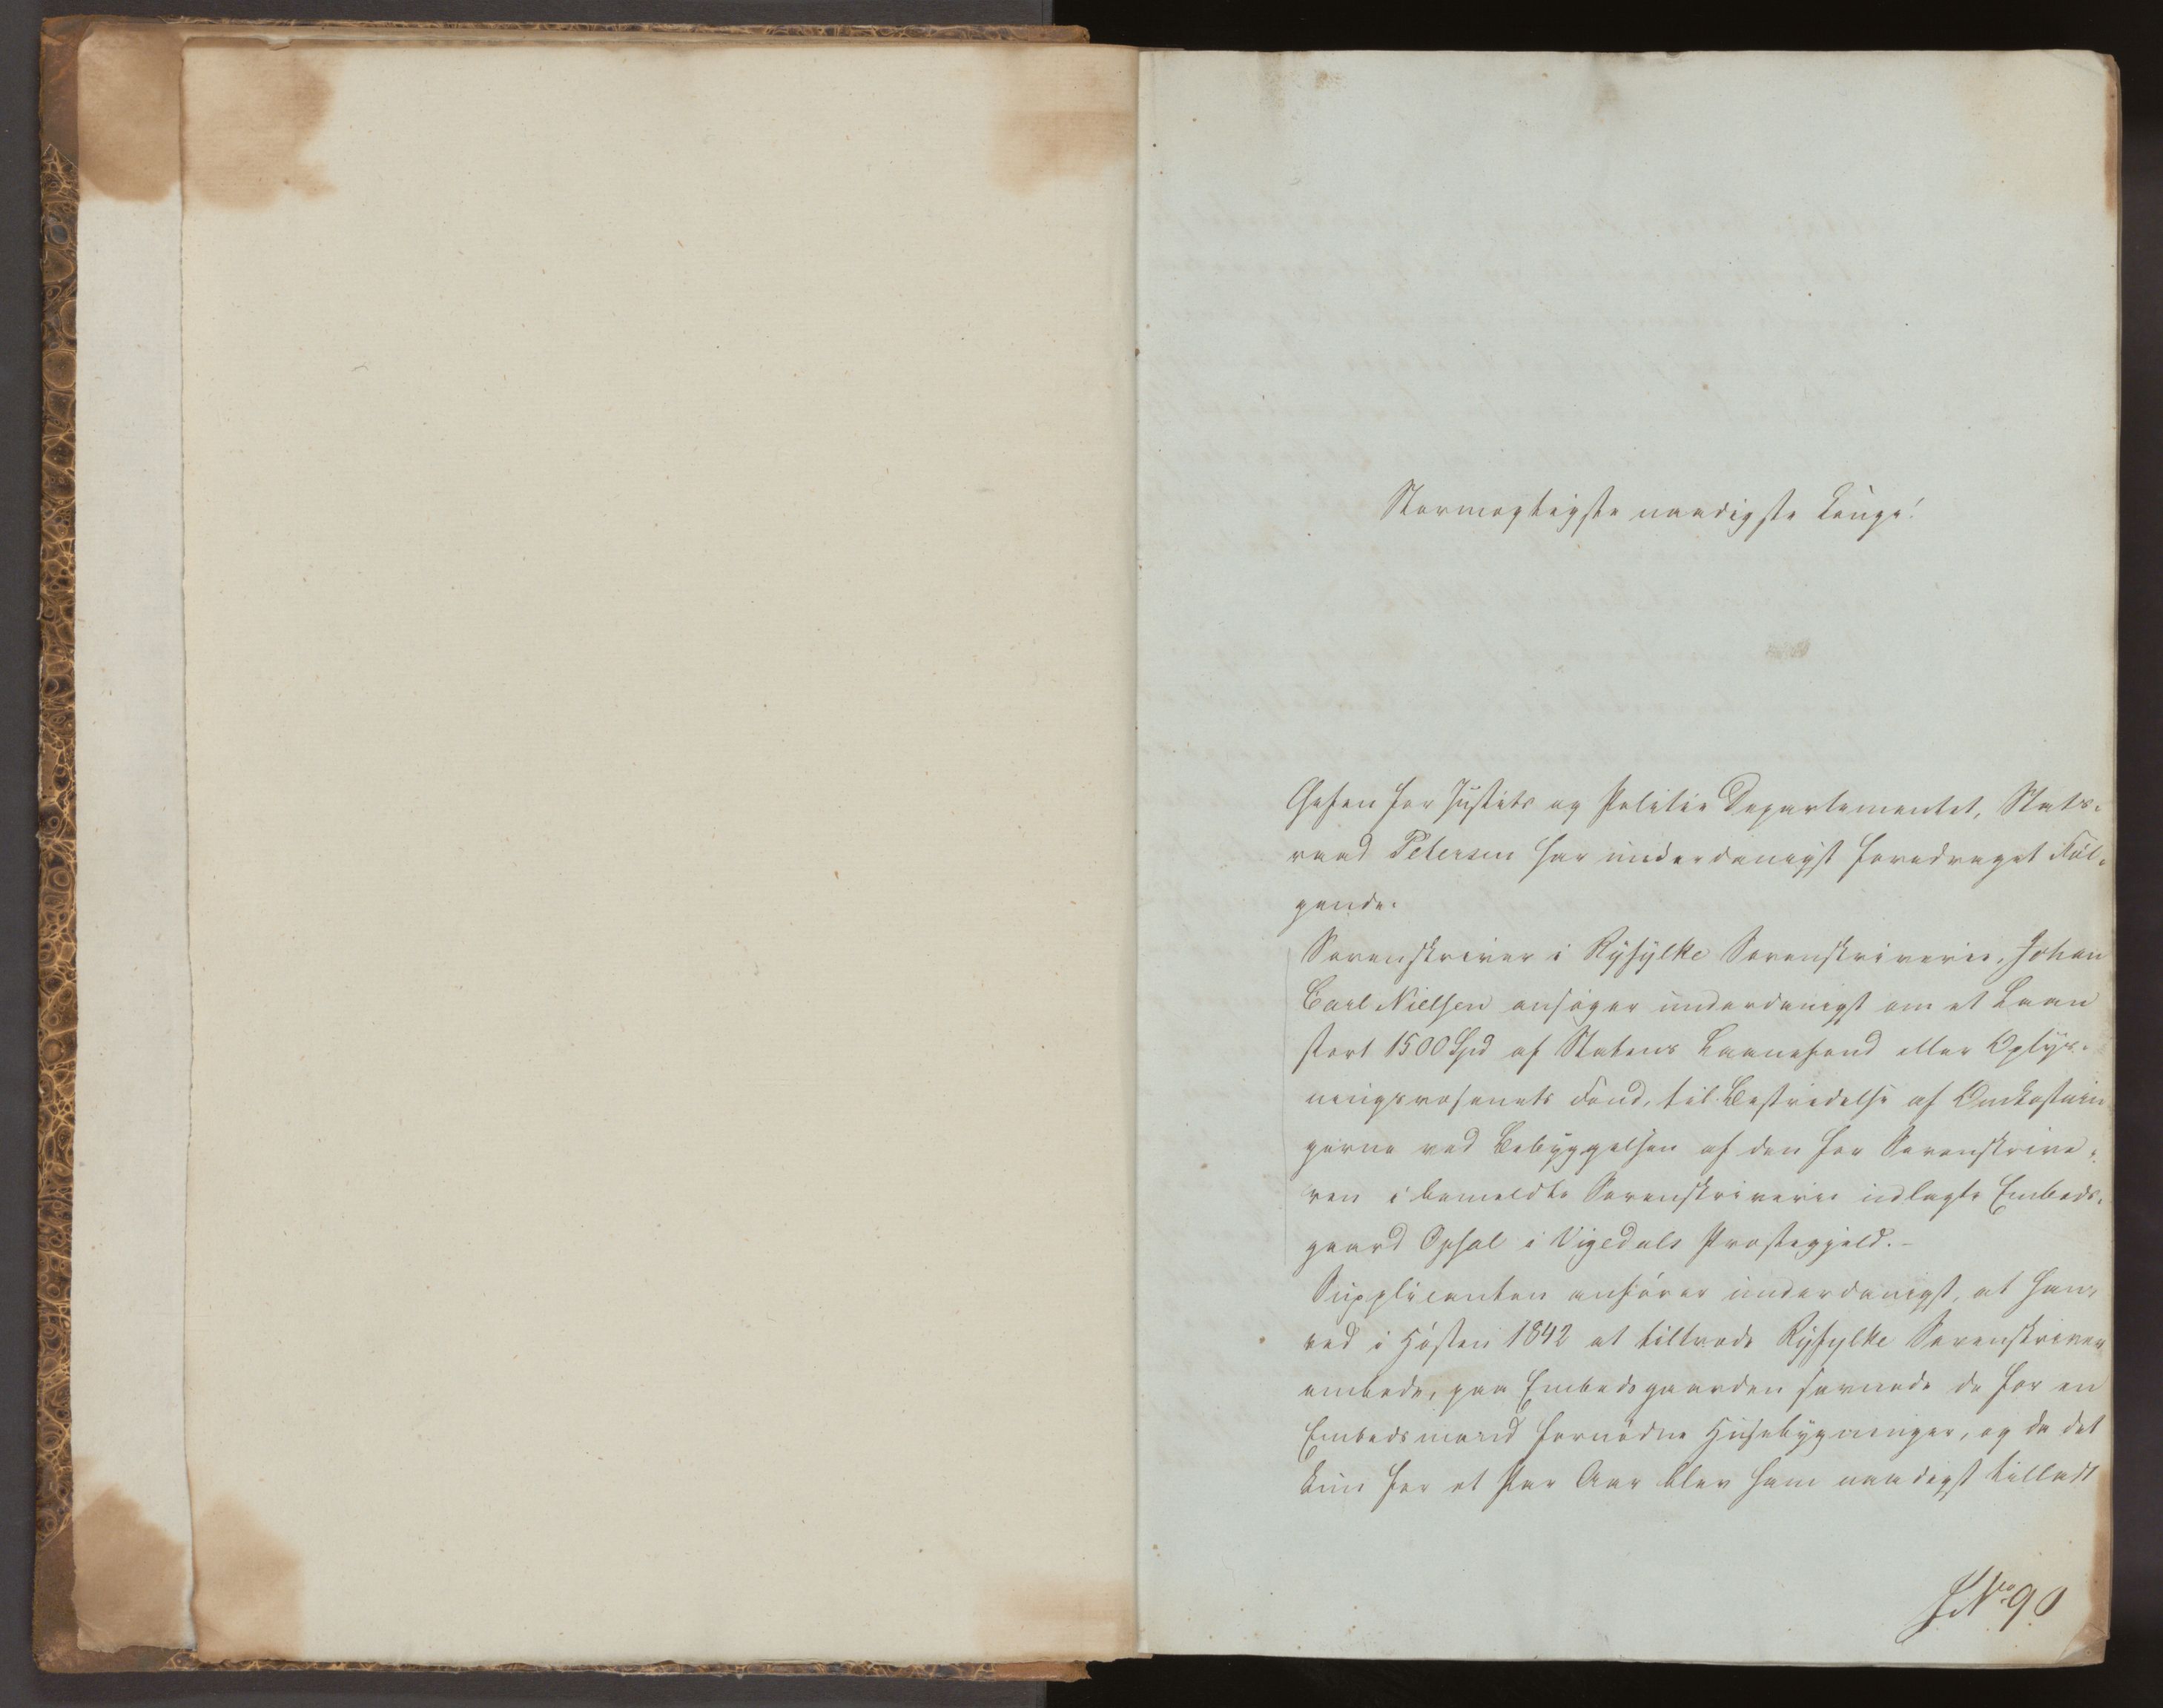 Stormægtigste naadigste Konge!
Chefen for Justits og Politie Departementet, Stats-
raad Petersen har underdanigst foredraget Føl-
gende:
Sorenskriver i Ryfylke Sorenskriverie, Johan
Carl Nielsen ansøger underdanigst om et Laan
stort 1500 Spd af Statens Laanefond eller Oplys-
ningsvæsenets Fond, til Bestridelse af Omkostnin
gerne ved Bebyggelsen af den for Sorenskrive-
ren i bemeldte Sorenskriverie udlagte Embeds-
gaard Opsal i Vigedals Præstegjeld.-
Supplicanten anfører underdanigst, at han,
ved i Høsten 1842 at tiltræde Ryfylke Sorenskriver
embede, paa Embedsgaarden savnede de for en
Embedsmand fornødne Huusbygninger, og da det
kun for et Par Aar blev ham naadigst tilladt
J. No 90